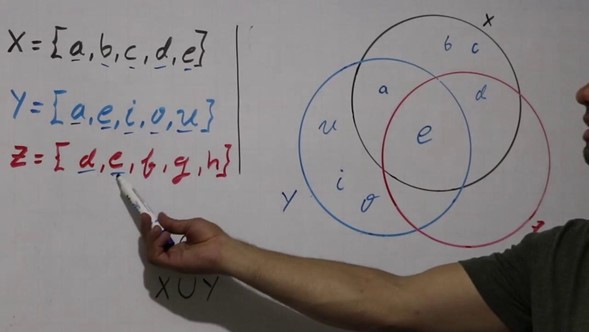 X = {a, b, c, d, e}
Y = {a, e, i, o, u}
Z = {d, e, f, g, h}
X
b c
a
d
u
e
i
o
Y
Z
X∪Y